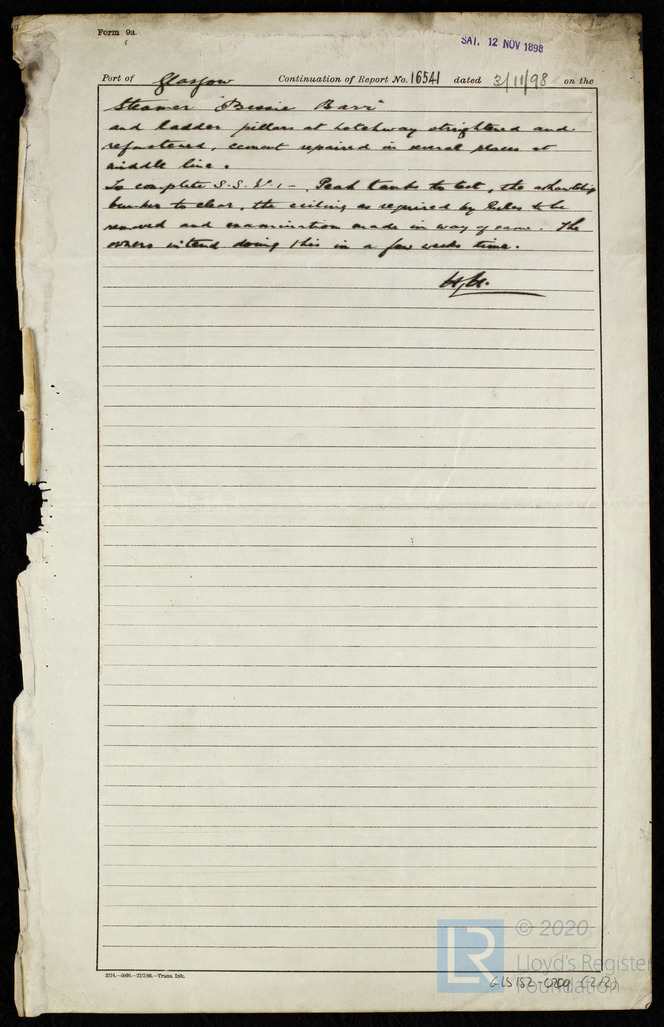 Form 9a.
SAT. 12 NOV 1898
Port of Glasgow Continuation of Report No. 16541 dated 3/11/98 on the
Steamer "Bessie Barr"
and ladder pillars at hatchway straightened and
refastened, cement repaired in several places at
middle line.
To complete S.S. No 1 - Peak tanks to test, the
bunker to clear, the ceiling as required by Rules to be
removed and examination made in way of same. The
owners intend doing this in a few weeks time.
© 2020
LR
Lloyd's Register
Foundation
GLS152-0209 (2/2)